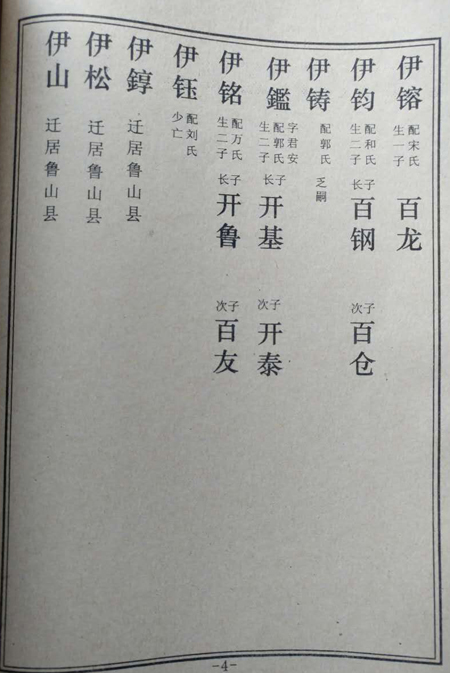 伊镕 配宋氏 生一子 百龙
伊钧 配和氏 生二子 长子 百钢 次子 百仓
伊铸 配郭氏 乏嗣
伊鑑 字君安 配郭氏 生二子 长子 开基 次子 开泰
伊铭 配万氏 生二子 长子 开鲁 次子 百友
伊钰 配刘氏 少亡
伊錞 迁居鲁山县
伊松 迁居鲁山县
伊山 迁居鲁山县
-4-